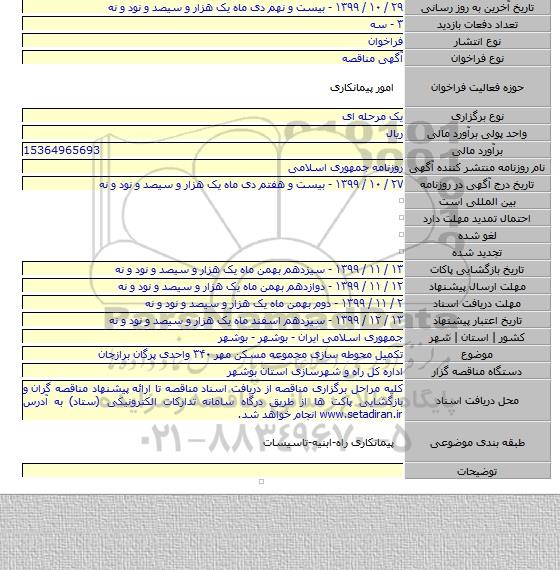 تاریخ آخرین به روز رسانی ۲۹ / ۱۰ / ۱۳۹۹ - بیست و نهم دی ماه یک هزار و سیصد و نود و نه
تعداد دفعات بازدید ۳ - سه
نوع انتشار فراخوان
نوع فراخوان آگهی مناقصه
حوزه فعالیت فراخوان امور پیمانکاری
نوع برگزاری یک مرحله ای
واحد پولی برآورد مالی ریال
برآورد مالی 15364965693
نام روزنامه منتشر کننده آگهی روزنامه جمهوری اسلامی
تاریخ درج آگهی در روزنامه ۲۷ / ۱۰ / ۱۳۹۹ - بیست و هفتم دی ماه یک هزار و سیصد و نود و نه
بین المللی است
احتمال تمدید مهلت دارد
لغو شده
تجدید شده
تاریخ بازگشایی پاکات ۱۳ / ۱۱ / ۱۳۹۹ - سیزدهم بهمن ماه یک هزار و سیصد و نود و نه
مهلت ارسال پیشنهاد ۱۲ / ۱۱ / ۱۳۹۹ - دوازدهم بهمن ماه یک هزار و سیصد و نود و نه
مهلت دریافت اسناد ۲ / ۱۱ / ۱۳۹۹ - دوم بهمن ماه یک هزار و سیصد و نود و نه
تاریخ اعتبار پیشنهاد ۱۳ / ۱۲ / ۱۳۹۹ - سیزدهم اسفند ماه یک هزار و سیصد و نود و نه
کشور | استان | شهر جمهوری اسلامی ایران - بوشهر - بوشهر
موضوع تکمیل محوطه سازی مجموعه مسکن مهر ۳۴۰ واحدی پرگان برازجان
دستگاه مناقصه گزار اداره کل راه و شهرسازی استان بوشهر
محل دریافت اسناد کلیه مراحل برگزاری مناقصه از دریافت اسناد مناقصه تا ارائه پیشنهاد مناقصه گران و
بازگشایی پاکت ها از طریق درگاه سامانه تدارکات الکترونیکی (ستاد) به آدرس
www.setadiran.ir انجام خواهد شد.
طبقه بندی موضوعی پیمانکاری راه-ابنیه-تاسیسات
توضیحات
۰۲۱-۸۸۳۴۹۶۷۰-۵